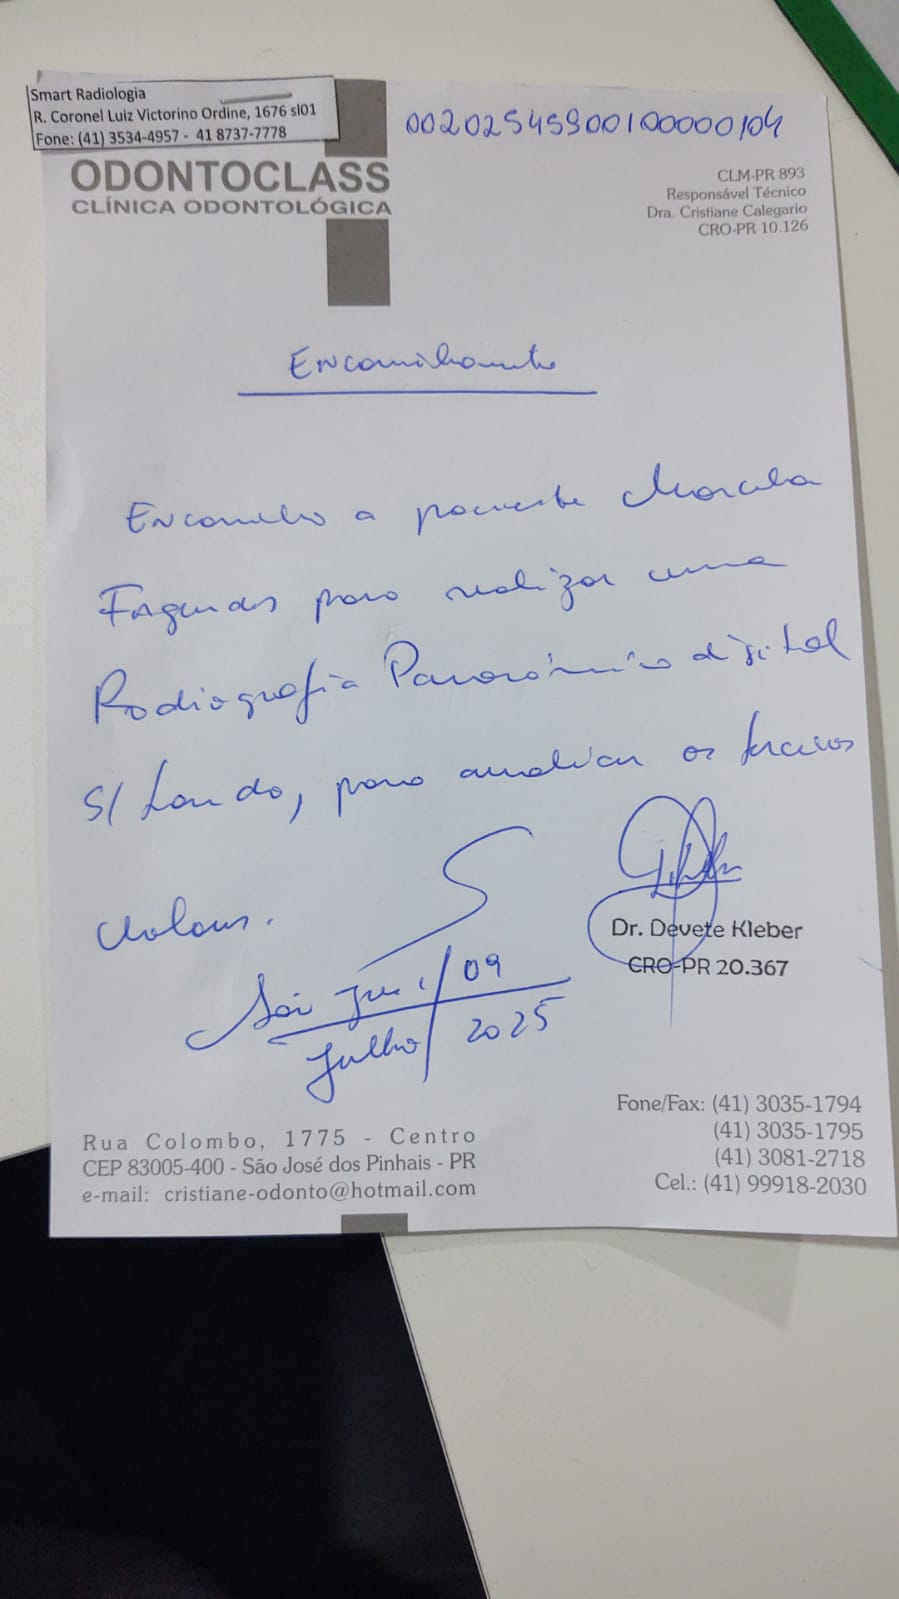 Smart Radiologia
R. Coronel Luiz Victorino Ordine, 1676 sl01
Fone: (41) 3534-4957 - 41 8737-7778
00202545900100000104
ODONTOCLASS
CLÍNICA ODONTOLÓGICA
CLM-PR 893
Responsável Técnico
Dra. Cristiane Calegario
CRO-PR 10.126
Encaminhamento
Encaminho a paciente
Fagundes para realizar uma
Radiografia Panorâmica digital
S/ Laudo, para avaliar os
São José / 09
Julho / 2025
Dr. Devete Kleber
CRO-PR 20.367
Rua Colombo, 1775 - Centro
CEP 83005-400 - São José dos Pinhais - PR
e-mail: cristiane-odonto@hotmail.com
Fone/Fax: (41) 3035-1794
(41) 3035-1795
(41) 3081-2718
Cel.: (41) 99918-2030